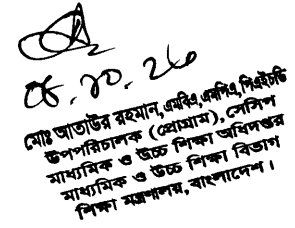 ০৪.১০.২৬
মোঃ আতাউর রহমান, এমবিএ, এমপিএ, পিএইচডি
উপপরিচালক (প্রোগ্রাম), সেসিপ
মাধ্যমিক ও উচ্চ শিক্ষা অধিদপ্তর
মাধ্যমিক ও উচ্চ শিক্ষা বিভাগ
শিক্ষা মন্ত্রণালয়, বাংলাদেশ।